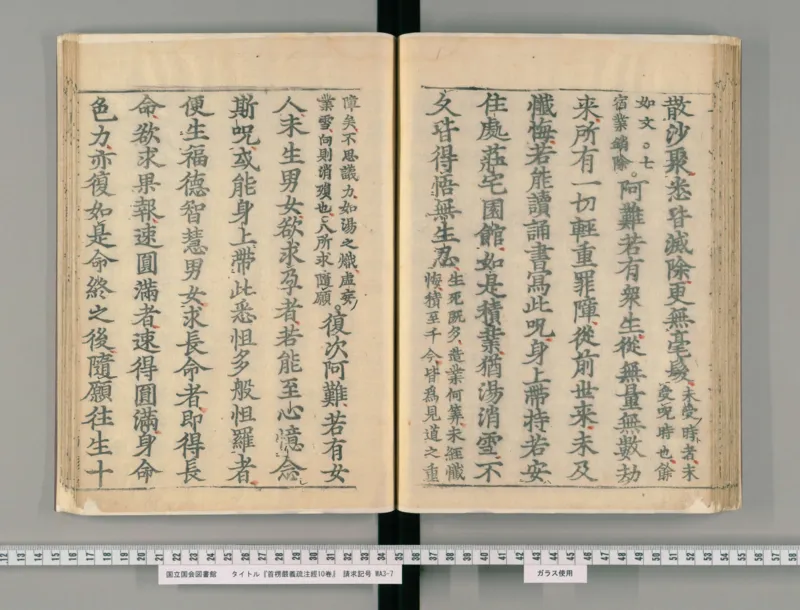 散沙聚悉皆滅除更無毫髮未受時者未
受呪時也餘
如文○七
宿業銷除○阿難若有衆生從無量無數劫
来所有一切輕重罪障從前世来未及
懺悔若能讀誦書寫此呪身上帶持若安
住處莊宅園館如是積業猶湯消雪不
久皆得悟無生忍生死既多造業何筭未經懺
悔積至于今皆爲見道之重
障矣不思議力如湯之熾虛妄
業雪向則消殞也○八所求隨願○復次阿難若有女
人未生男女欲求孕者若能至心憶念
斯呪或能身上帶此悉怛多般怛羅者
便生福德智慧男女求長命者即得長
命欲求果報速圓滿者速得圓滿身命
色力亦復如是命終之後隨願往生十
国立国会図書館 タイトル『首楞嚴義疏注經10巻』 請求記号 WA3-7
ガラス使用
12 13 14 15 16 17 18 19 20 21 22 23 24 25 26 27 28 29 30 31 32 33 34 35 36 37 38 39 40 41 42 43 44 45 46 47 48 49 50 51 52 53 54 55 56 57 58